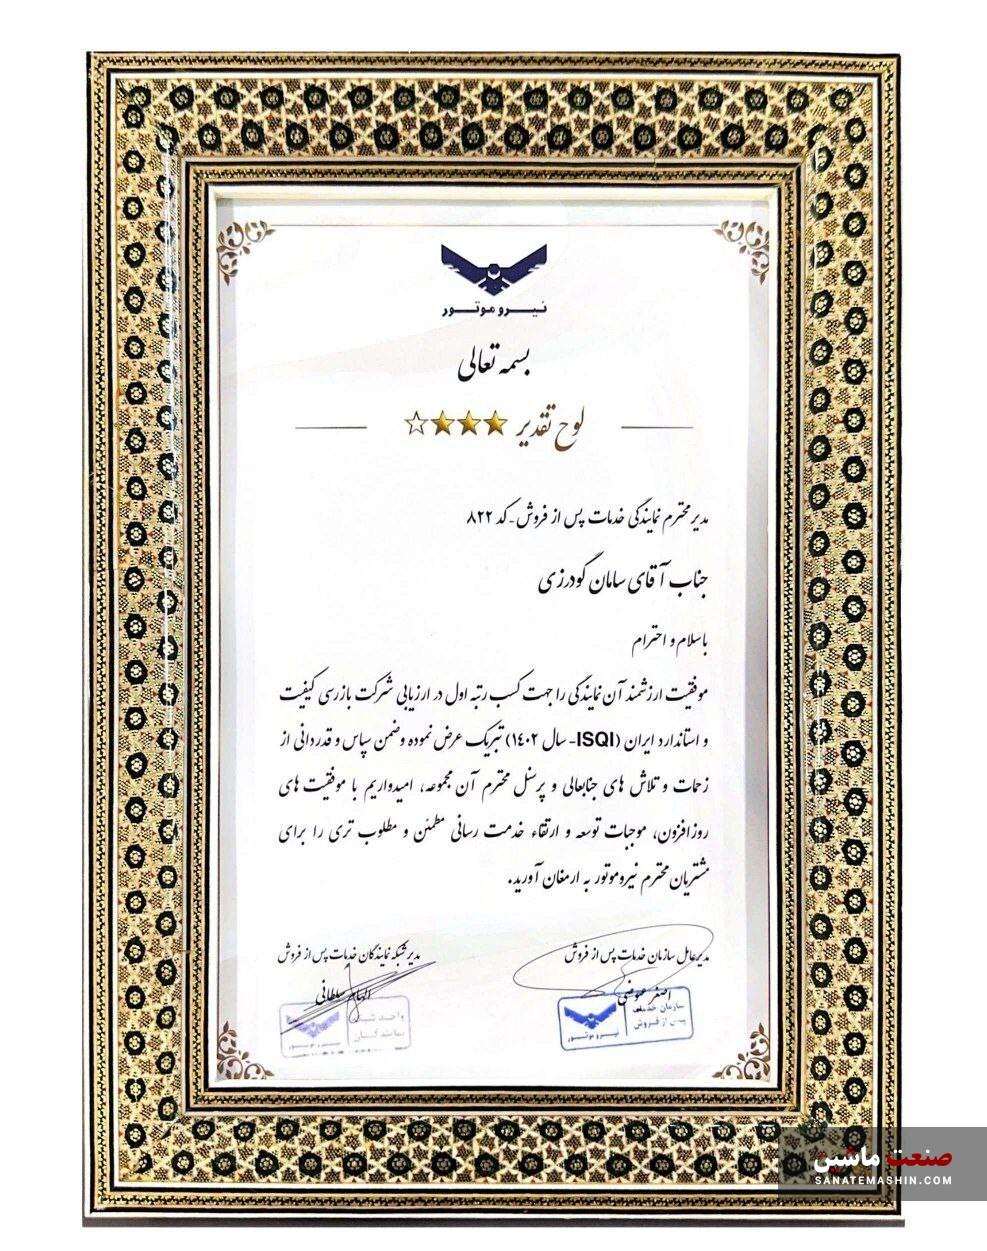 نیرو موتور
بسمه تعالی
لوح تقدیر
مدیر محترم نمایندگی خدمات پس از فروش - کد ۸۲۲
جناب آقای سامان گودرزی
باسلام و احترام
موفقیت ارزشمند آن نمایندگی را جهت کسب رتبه اول در ارزیابی شرکت بازرسی کیفیت
و استاندارد ایران (ISQI- سال ۱۴۰۲) تبریک عرض نموده وضمن سپاس و قدردانی از
زحمات و تلاش های جنابعالی و پرسنل محترم آن مجموعه، امیدواریم با موفقیت های
روزافزون، موجبات توسعه و ارتقاء خدمت رسانی مطمئن و مطلوب تری را برای
مشتریان محترم نیروموتور به ارمغان آورید.
مدیرعامل سازمان خدمات پس از فروش
اصغر عوضی
سازمان خدمات
پس از فروش
نیرو موتور
مدیر شبکه نمایندگان خدمات پس از فروش
الهام سلطانی
واحد شبکه
نمایندگان
نیرو موتور
صنعت ماشین
SANATEMASHIN.COM